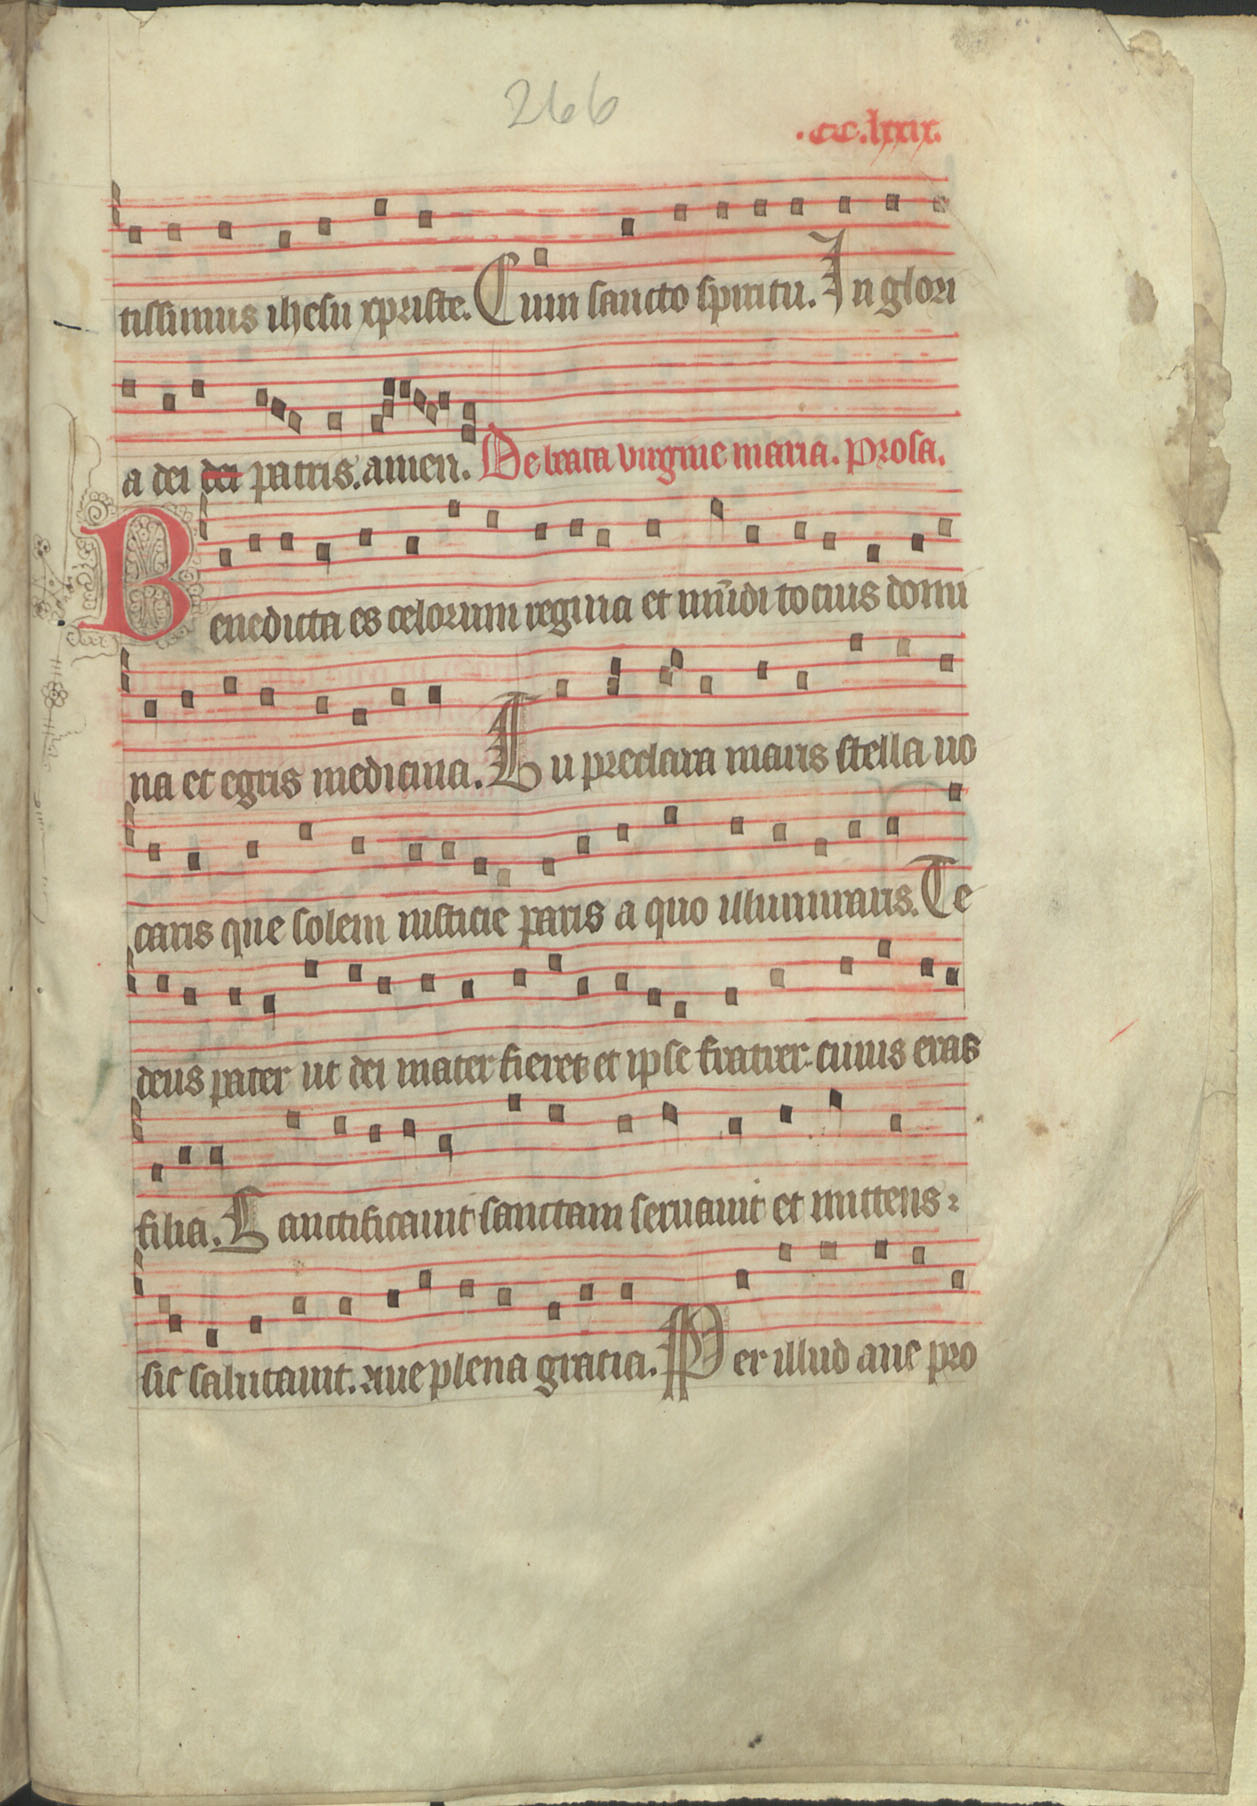 266
.CC.lxxix.
tissimus ihesu xpriste. Cum sancto spiritu. In glori
a dei dei patris. amen. De beata virgine maria. Prosa.
Benedicta es celorum regina et mu̅di tocius domi
na et egris medicina. Tu preclara maris stella uo
caris que solem iusticie paris a quo illuminaris. Te
deus pater ut dei mater fieres et ipse frater. cuius eras
filia. Sanctificauit sanctam seruauit et mittens
sic salutauit. aue plena gracia. Per illud aue pro